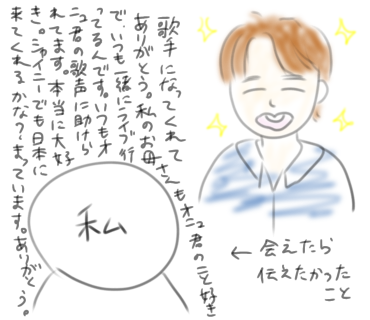 歌手になってくれて
ありがとう。私のお母さんもオニュ君のこと好き
で、いつも一緒にライブ行
ってるんです。いつもオ
ニュ君の歌声に助けら
れてます。本当に大好
き。シャイニーでも日本に
来てくれるかな？まっています。ありがとう。
私
← 会えたら
伝えたかった
こと